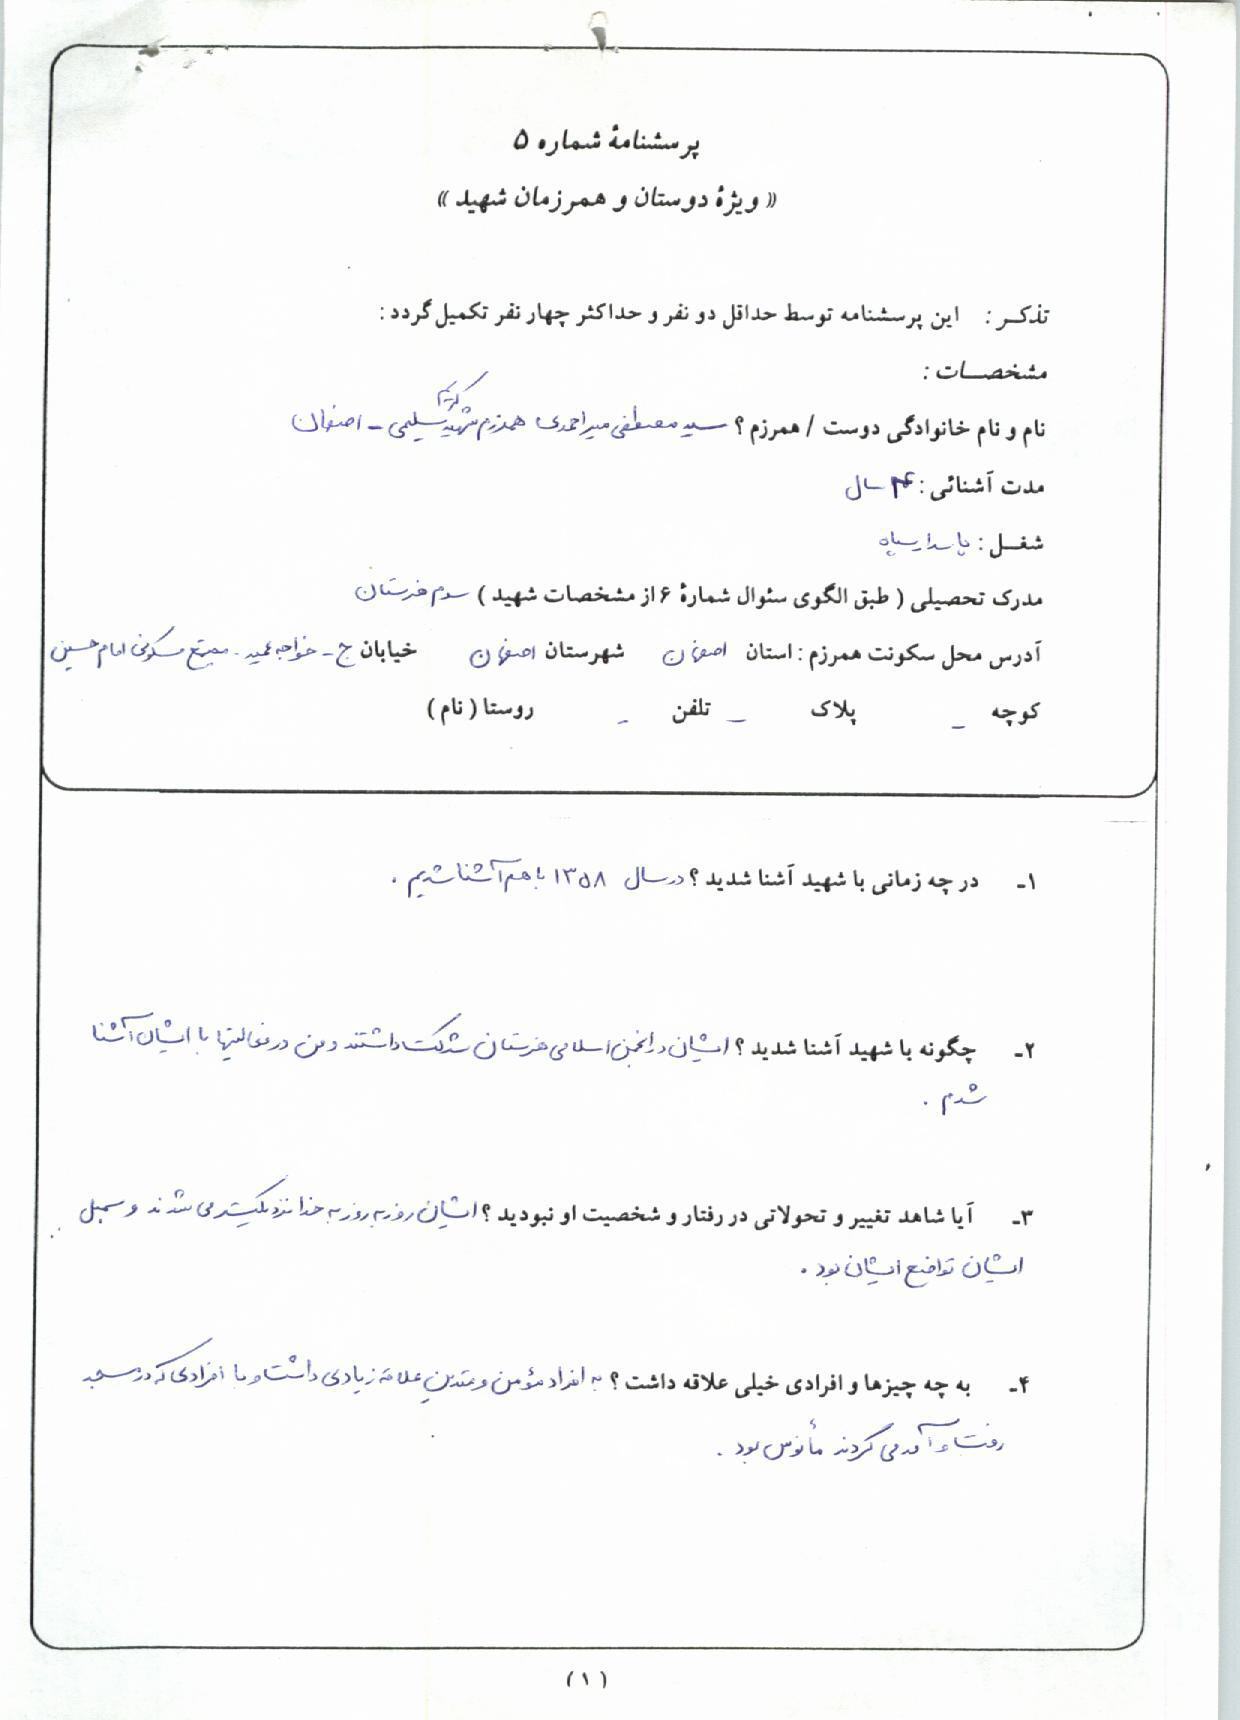 پرسشنامهٔ شماره ۵
« ویژهٔ دوستان و همرزمان شهید »
تذکـر : این پرسشنامه توسط حداقل دو نفر و حداکثر چهار نفر تکمیل گردد :
مشخصـات :
کریم
نام و نام خانوادگی دوست / همرزم ؟ سید مصطفی میراحمدی همرزم شهید سلیمی - اصفهان
مدت آشنائی : ۴ سال
شغـل : پاسدار سپاه
مدرک تحصیلی ( طبق الگوی سئوال شمارهٔ ۶ از مشخصات شهید ) سوم هنرستان
آدرس محل سکونت همرزم : استان اصفهان شهرستان اصفهان خیابان ج - خواجه عمید - مجتمع مسکونی امام حسین
کوچه - پلاک - تلفن - روستا ( نام )
۱ـ در چه زمانی با شهید آشنا شدید ؟ در سال ۱۳۵۸ با هم آشنا شدیم .
۲ـ چگونه با شهید آشنا شدید ؟ ایشان در انجمن اسلامی هنرستان شرکت داشتند و من در فعالیتها با ایشان آشنا
شدم .
۳ـ آیا شاهد تغییر و تحولاتی در رفتار و شخصیت او نبودید ؟ ایشان روز به روز به خدا نزدیکتر می شدند و سمبل
ایشان تواضع ایشان بود .
۴ـ به چه چیزها و افرادی خیلی علاقه داشت ؟ به افراد مؤمن و متدین علاقه زیادی داشت و با افرادی که در مسجد
رفت و آمد می کردند مأنوس بود .
( ۱ )